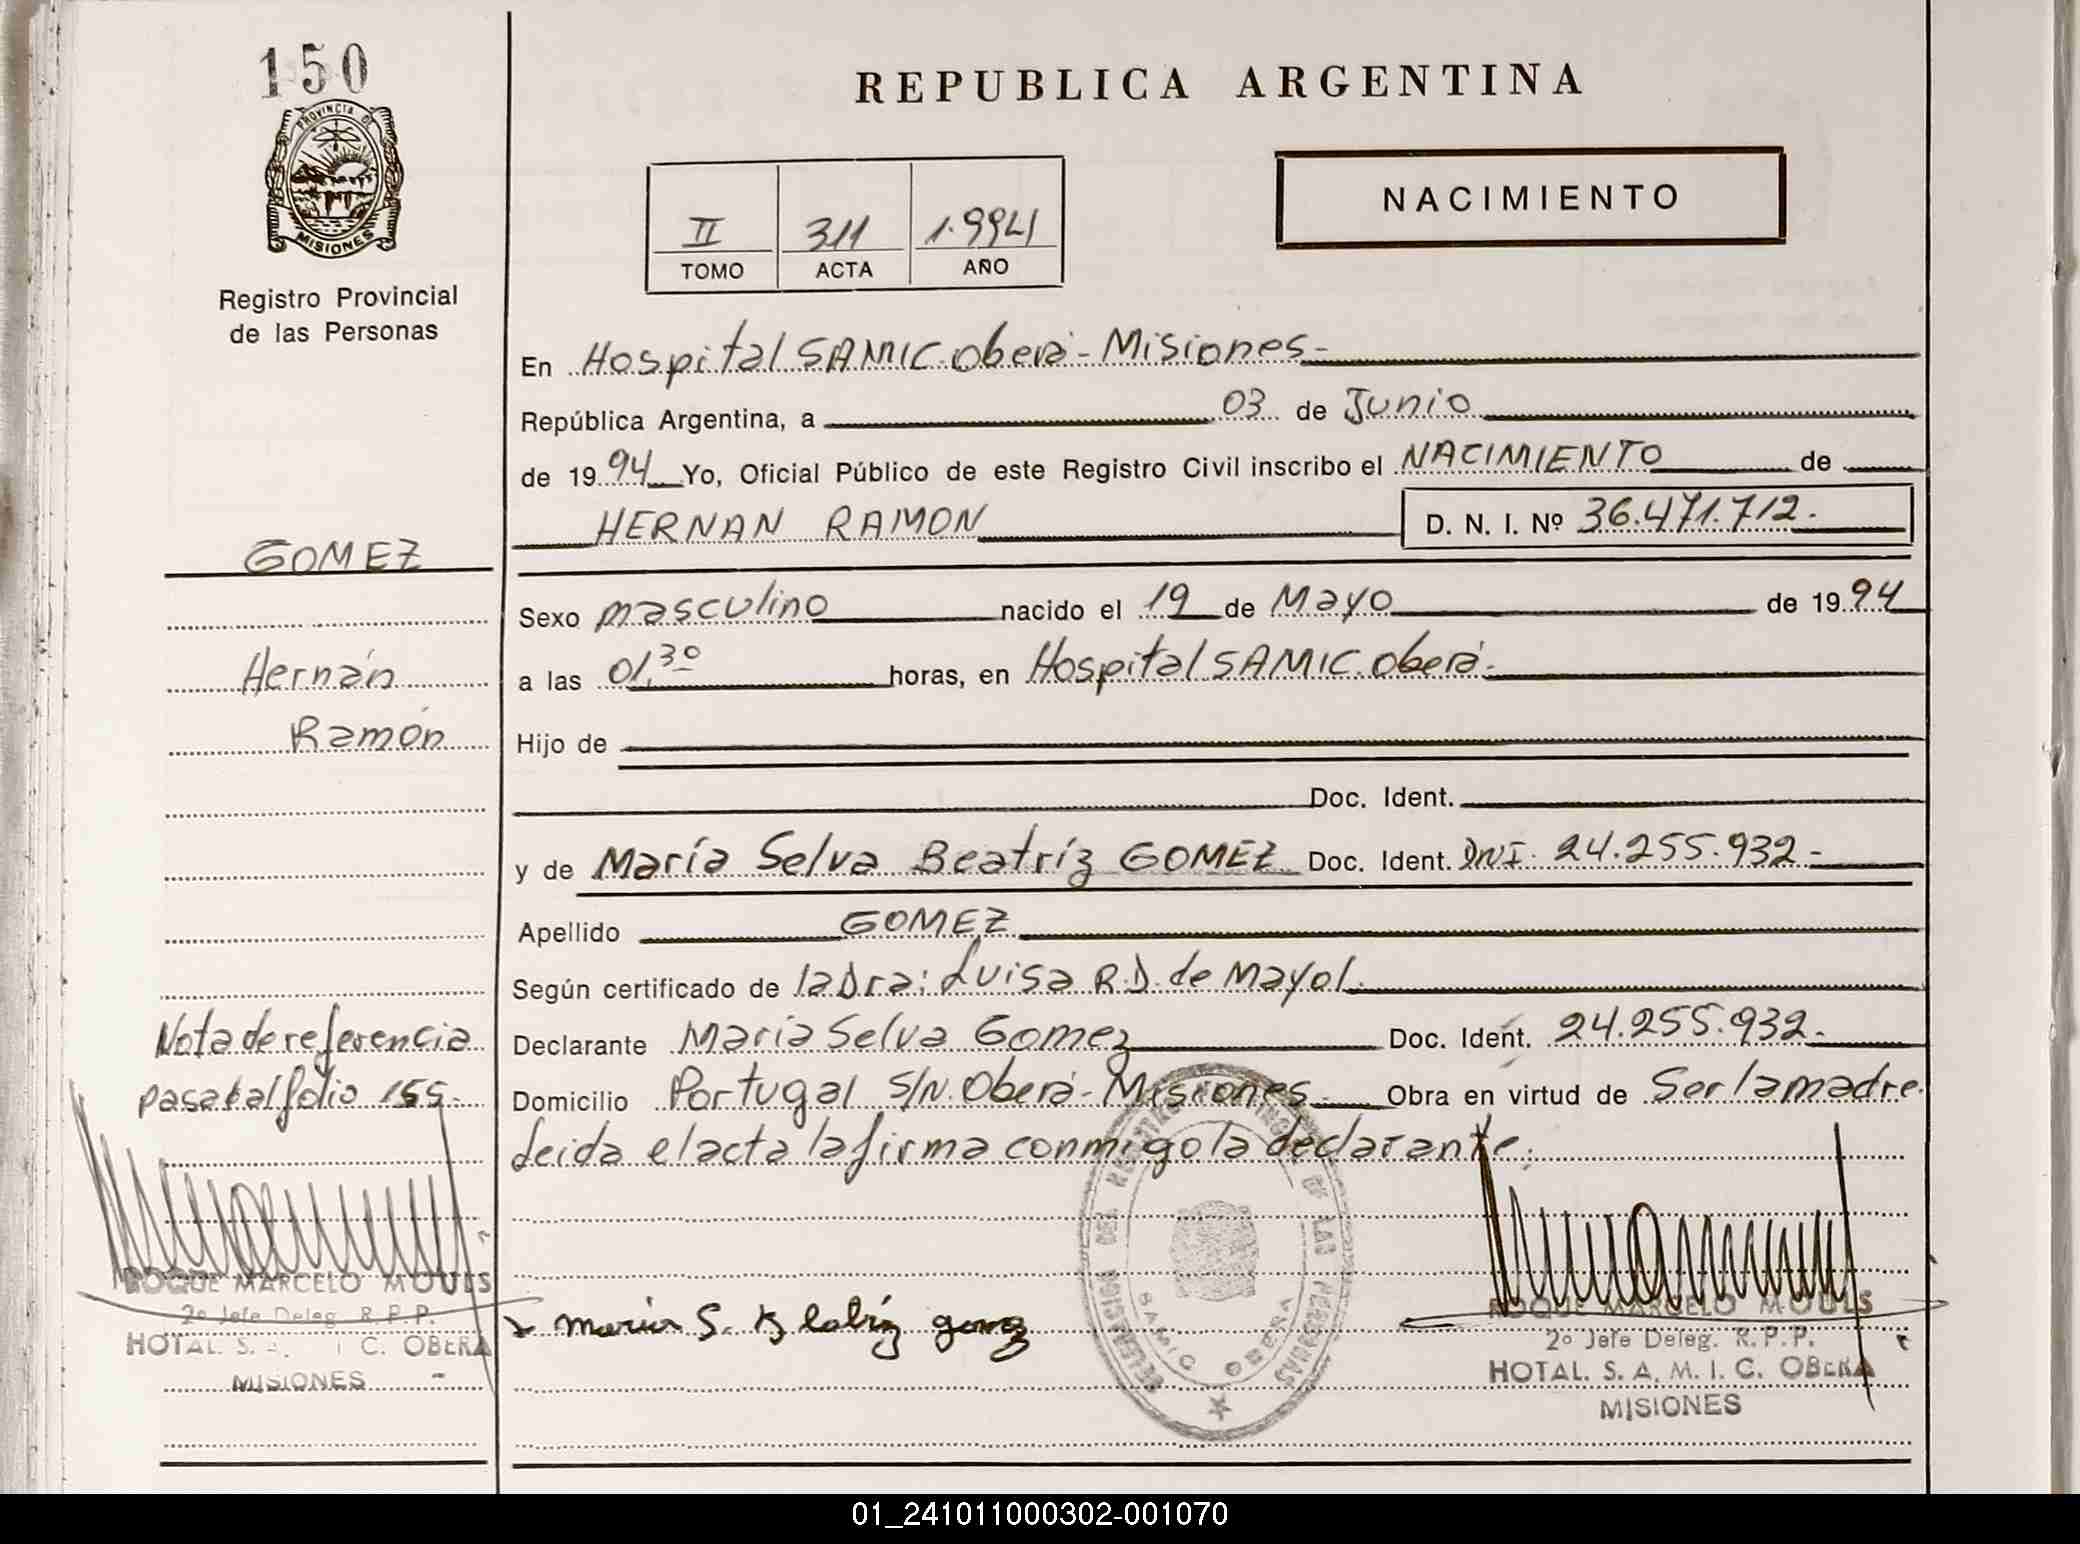 150
PROVINCIA DE
MISIONES
Registro Provincial
de las Personas
REPUBLICA ARGENTINA
NACIMIENTO
II 311 1.994
TOMO ACTA AÑO
En Hospital SAMIC. Oberá - Misiones -
República Argentina, a 03 de Junio
de 1994 Yo, Oficial Público de este Registro Civil inscribo el NACIMIENTO de
HERNAN RAMON D. N. I. Nº 36.471.712.
GOMEZ
Sexo masculino nacido el 19 de Mayo de 1994
Hernán
a las 01,30 horas, en Hospital SAMIC. Oberá -
Ramón
Hijo de
Doc. Ident.
y de María Selva Beatríz GOMEZ Doc. Ident. DNI. 24.255.932 -
Apellido GOMEZ
Según certificado de la Dra: Luisa R.D. de Mayol.
Nota de referencia
Declarante María Selva Gomez Doc. Ident. 24.255.932.
pasa al folio 155.
Domicilio Portugal S/N. Oberá - Misiones - Obra en virtud de Ser la madre.
Leida el acta la firma conmigo la declarante.
ROQUE MARCELO MOULS
2º Jefe Deleg. R. P. P.
HOTAL. S. A. I C. OBERA
MISIONES
maria S. gomez
DELEGACION DEL REGISTRO DE LAS PERSONAS
SAMIC OBERA
ROQUE MARCELO MOULS
2º Jefe Deleg. R. P. P.
HOTAL. S. A. M. I. C. OBERA
MISIONES
01_241011000302-001070